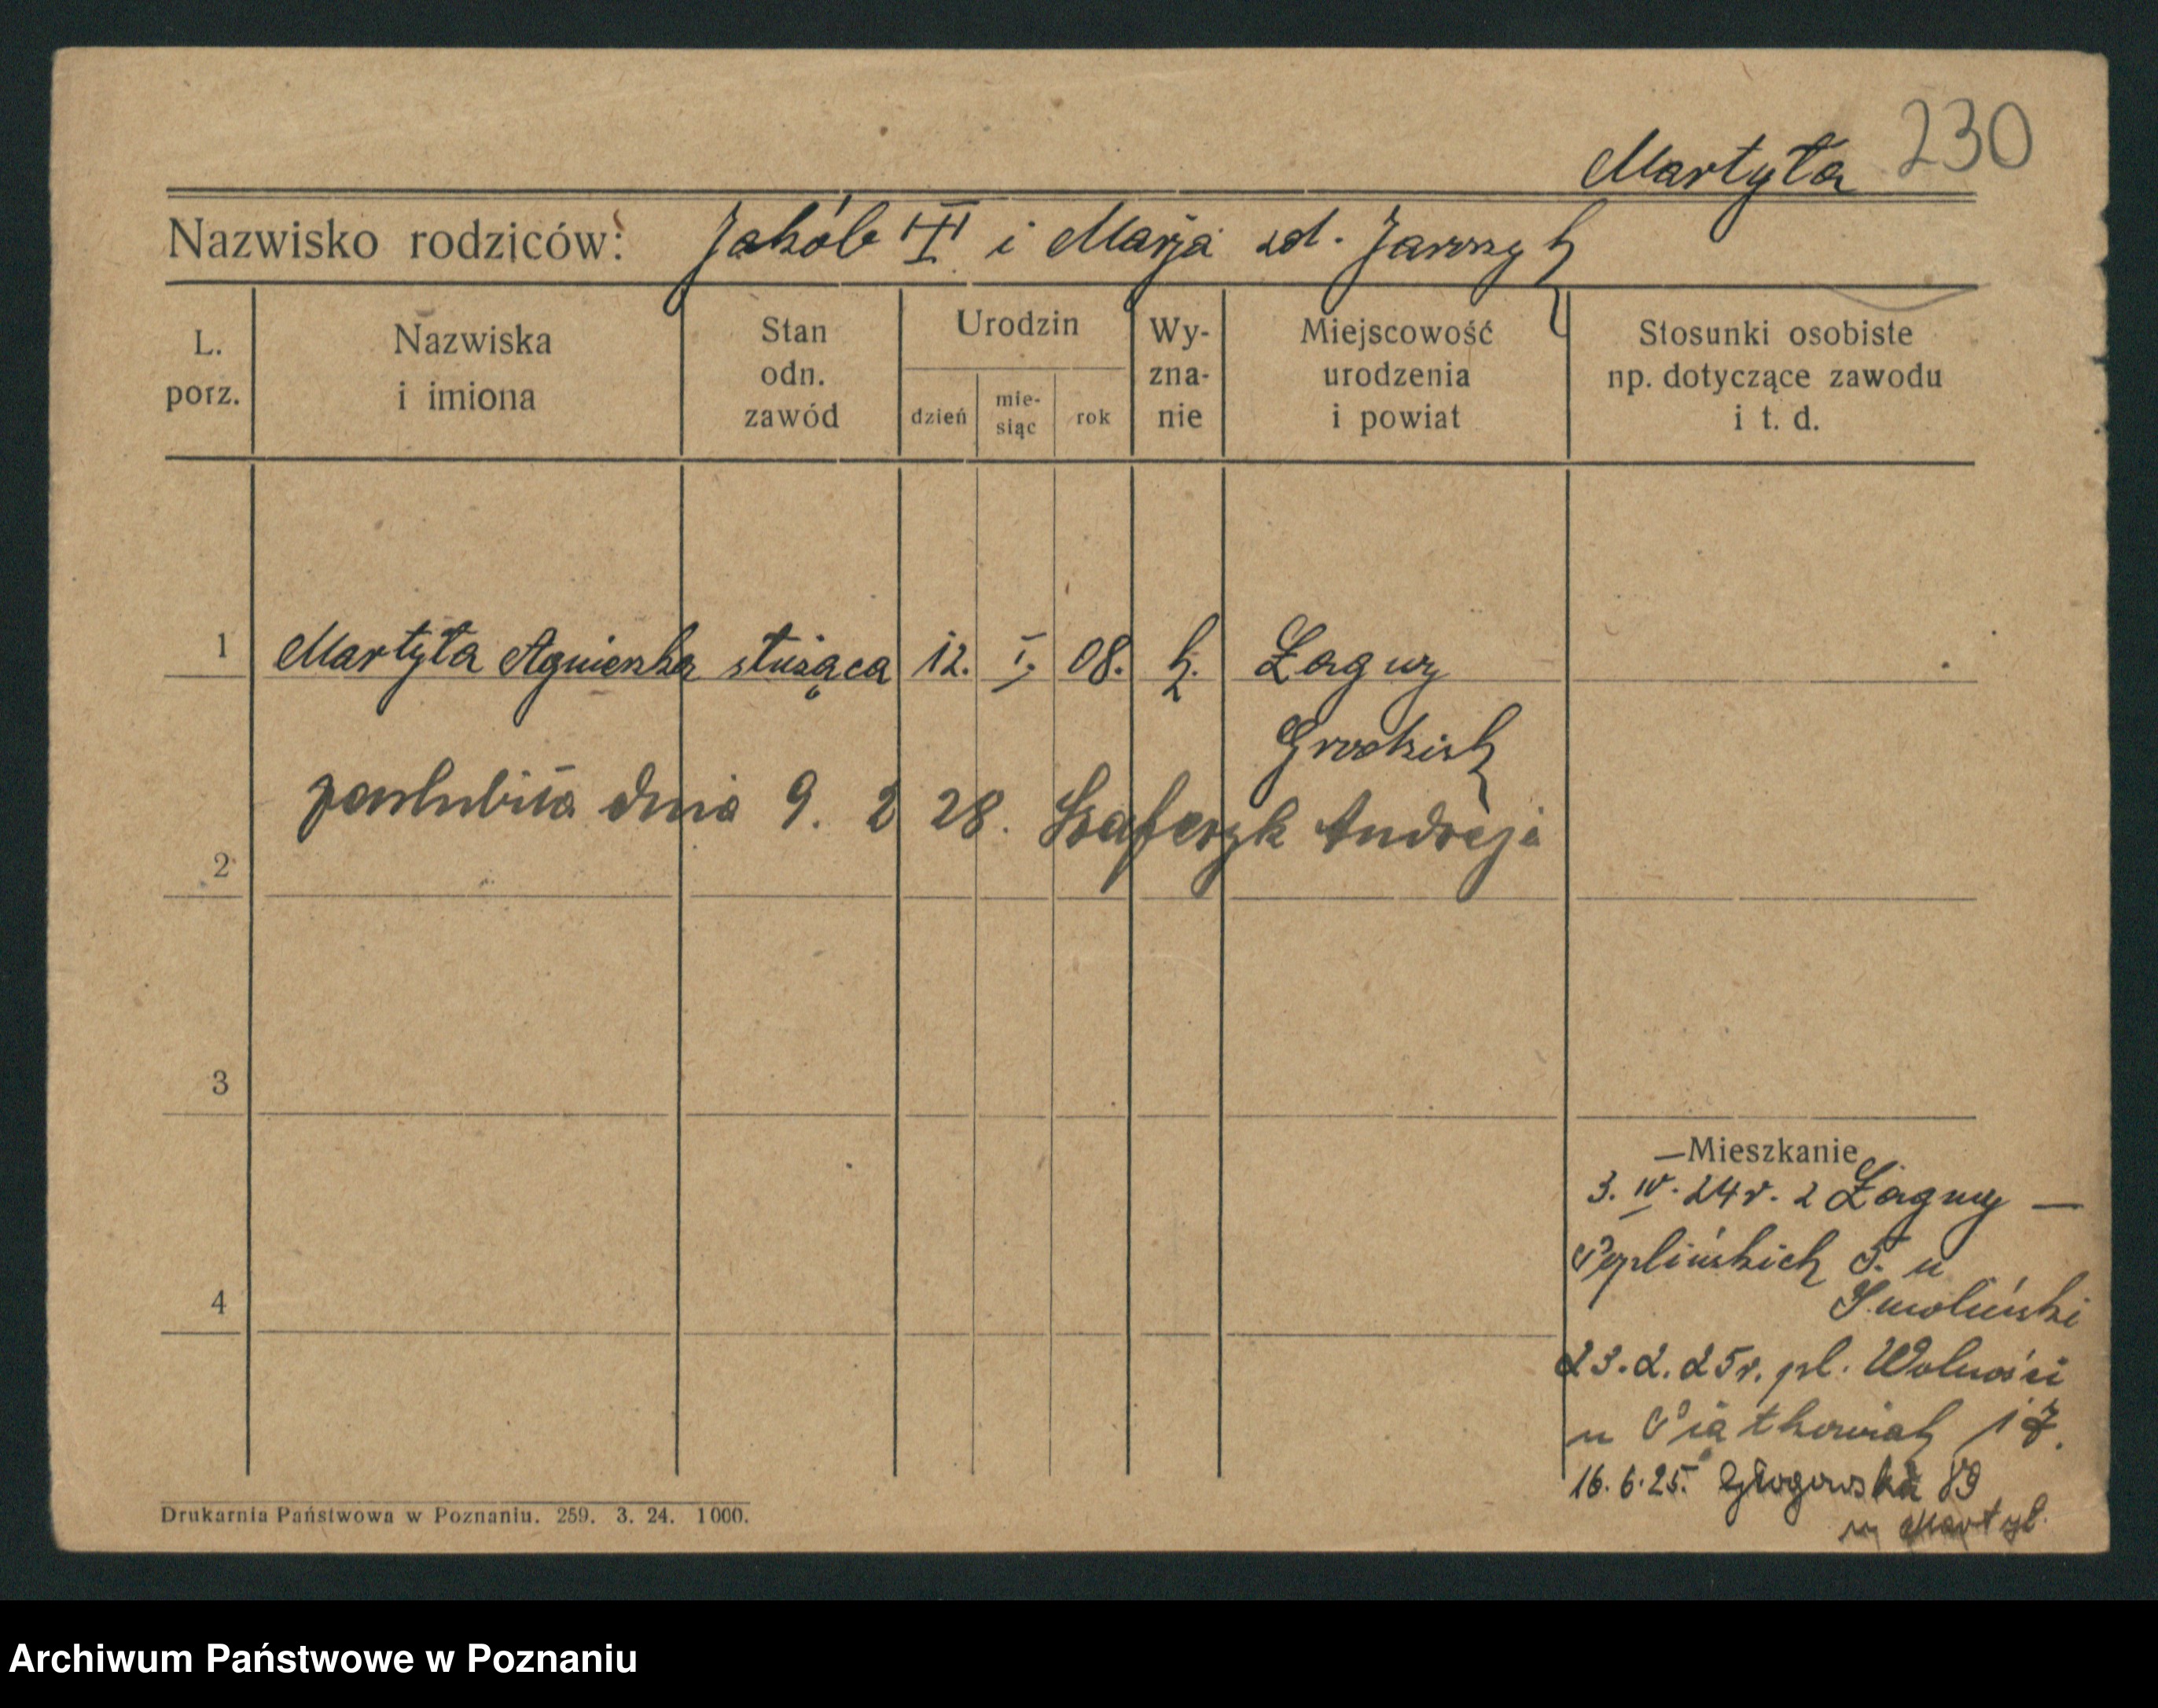 230
Martyła
Nazwisko rodziców: Jakób i Marja zd. Jaroszyk
L. porz.
Nazwiska i imiona
Stan odn. zawód
Urodzin
dzień
mie-siąc
rok
Wy-zna-nie
Miejscowość urodzenia i powiat
Stosunki osobiste np. dotyczące zawodu i t. d.
1 Martyła Agnieszka służąca 12. I. 08. k. Łagwy
Grodzisk
poślubiła dnia 9. 2 28. Andrzeja
2
3
4
Mieszkanie
3. IV. 24 r. z Łagwy —
Peplińskich 5. u
Smoliński
23. 2. 25 r. pl. Wolności
u Piątkowiak 17.
16. 6. 25. Głogowska 89
u Martył.
Drukarnia Państwowa w Poznaniu. 259. 3. 24. 1000.
Archiwum Państwowe w Poznaniu